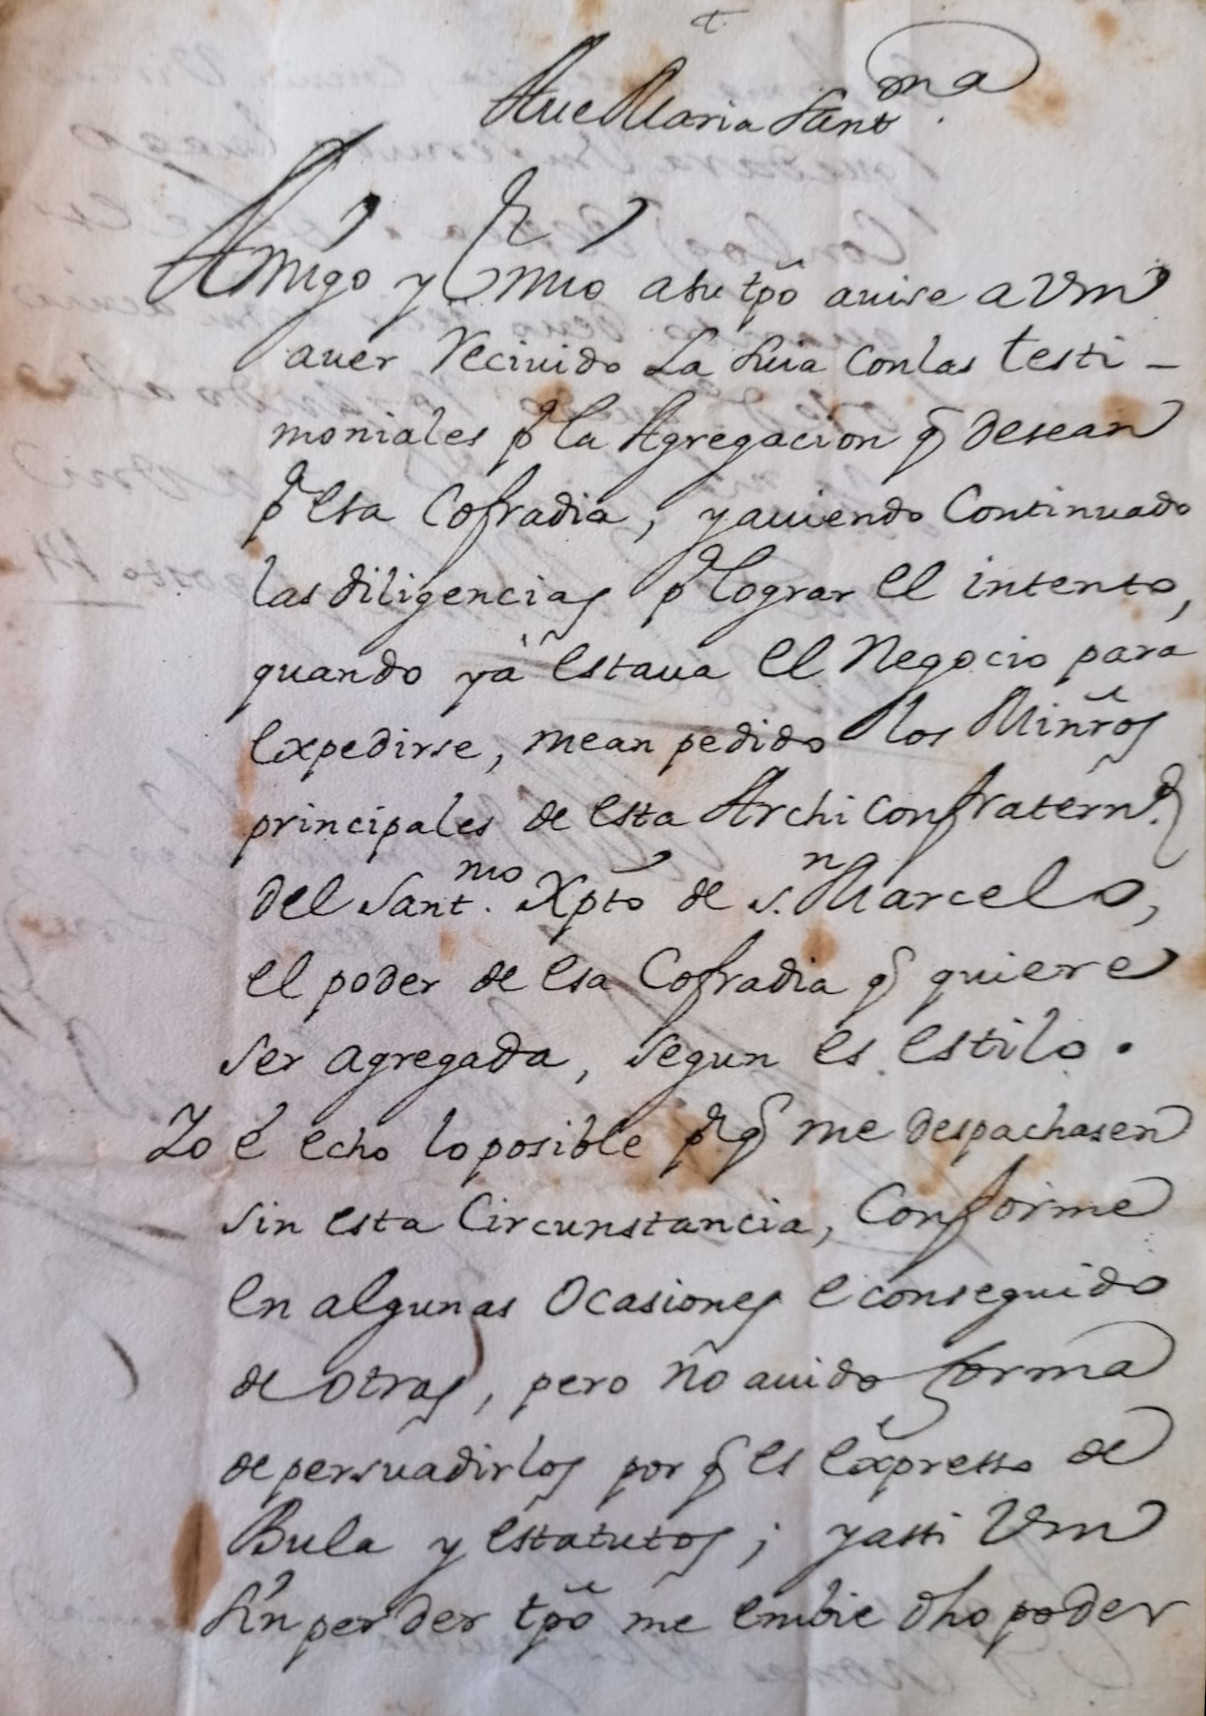 t
Aue Maria Santma.
Amigo y Sr mio a su tpõ auise a Vm
auer Reciuido la suia con las testi-
moniales pa la Agregacion q desean
pa esa Cofradia, y auiendo Continuado
las diligencias pa lograr el intento,
quando yà estaua el Negocio para
expedirse, me an pedido los Minrõs
principales de esta Archiconfraternd.
del Santmo. Xpto de Sn. Marcelo,
el poder de esa Cofradia q quiere
ser agregada, segun es estilo.
Yo é echo lo posible pr q me despachasen
sin esta Circunstancia, Conforme
en algunas Ocasiones e conseguido
de otras, pero nõ auido forma
de persuadirlos por q es expresso de
Bula y estatutos; y assi Vm
sin perder tpõ me embie dho poder